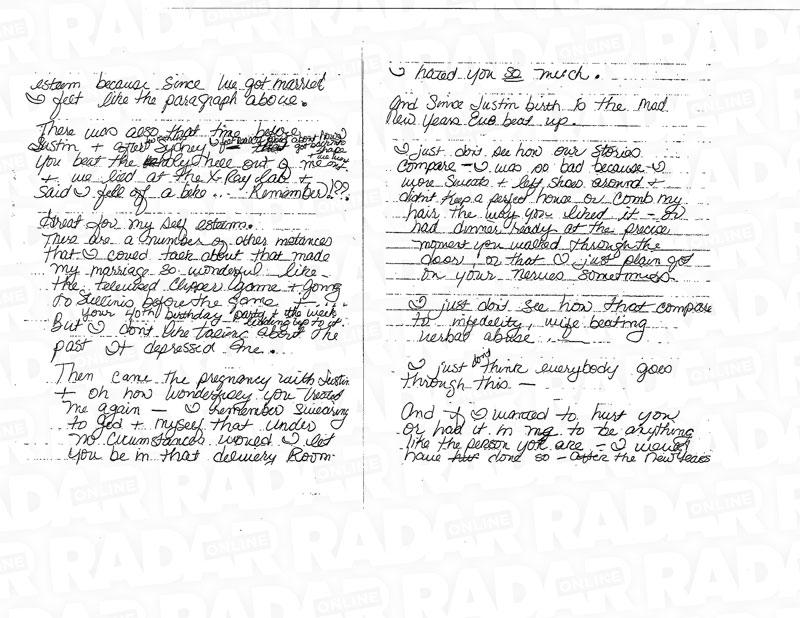 esteem because since we got married
I felt like the paragraph above.
There was also that time before
Justin + after Sydney
you beat the holy hell out of me
+ we lied at the X-Ray lab +
said I fell off a bike ... Remember!??
Great for my self esteem.
There are a number of other instances
that I could talk about that made
my marriage so wonderful like -
the televised Clipper game + going
to Stellinis before the game -
your 40th birthday party + the week
leading up to it.
But I don't like talking about the
past It depressed me.
Then came the pregnancy with Justin
+ oh how wonderfully you treated
me again - I remember swearing
to God + myself that under
no circumstances would I let
you be in that delivery Room
I hated you so much.
And since Justin birth is the mad
New Years Eve beat up.
I just don't see how our stories
compare - I was so bad because I
wore sweats + left shoes around +
didn't keep a perfect house or comb my
hair the way you liked it - or
had dinner ready at the precise
moment you walked through the
door or that I just plain got
on your nerves sometimes.
I just don't see how that compares
to infidelity, wife beating
verbal abuse
I just don't think everybody goes
through this -
And if I wanted to hurt you
or had it in me to be anything
like the person you are - I would
have done so - after the New Years
RADAR
ONLINE